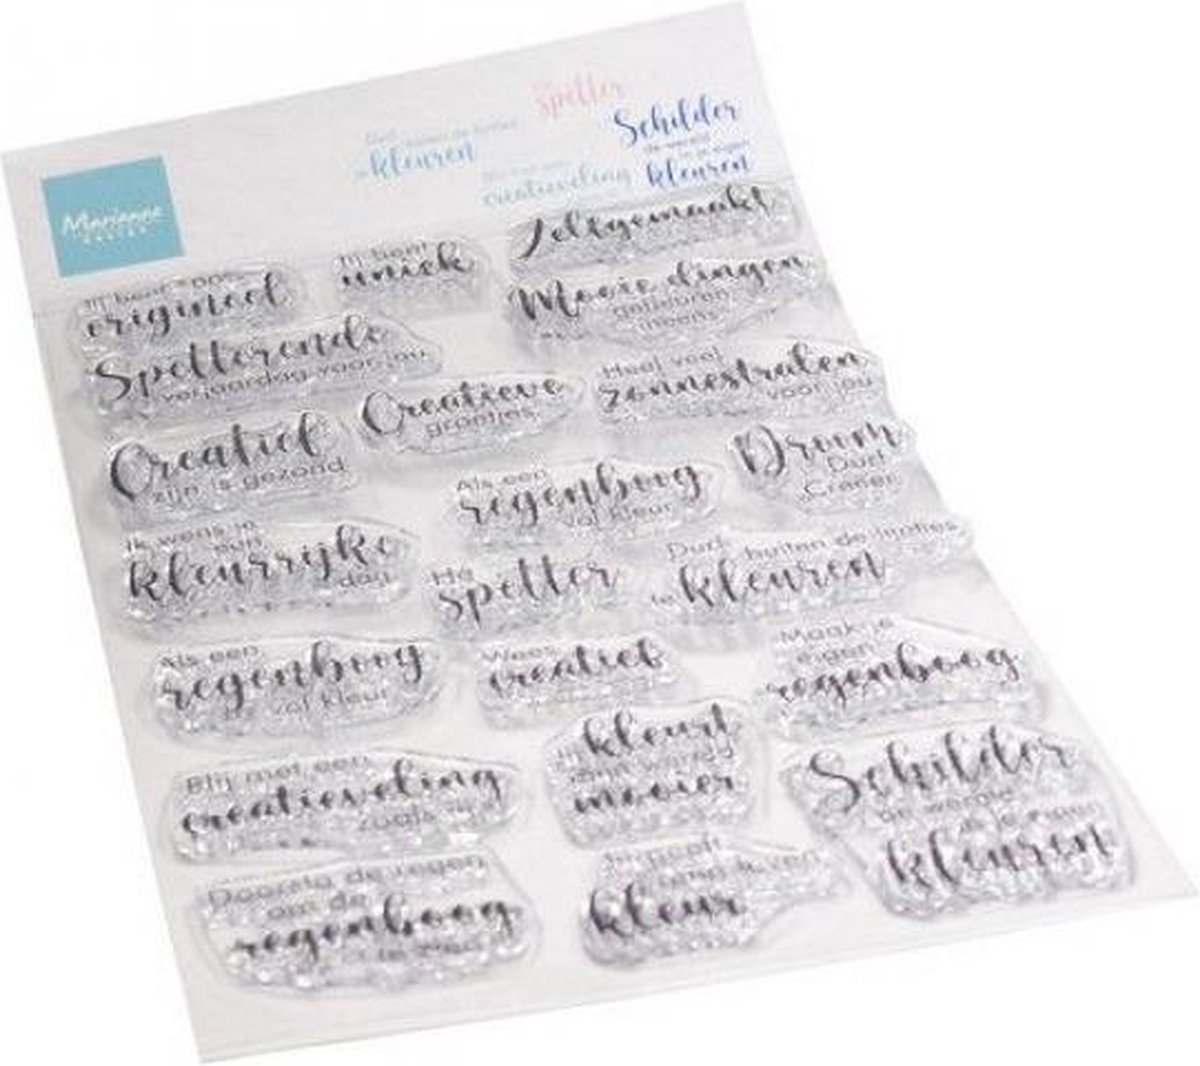 Marianne
DESIGN
spetter
Durf buiten de lijntjes
te kleuren
Schilder
de wereld
in je eigen
kleuren
Blij met een
creatieveling
Jij bent zo'n
origineel
Jij bent
uniek
Zelfgemaakt
Mooie dingen
gebeuren
ineens
Spetterende
verjaardag voor jou
Creatieve
groetjes
Heel veel
zonnestralen
voor jou
Creatief
zijn is gezond
Als een
regenboog
vol kleur
Droom
Durf
Creëer
Ik wens je
een
kleurrijke
dag
Hé
spetter
Durf buiten de lijntjes
te kleuren
Als een
regenboog
vol kleur
Wees
creatief
Maak je
eigen
regenboog
Blij met een
creatieveling
zoals jij
Jij kleurt
mijn
mooier
Schilder
de wereld
in je eigen
kleuren
Doorsta de regen
om de
regenboog
te zien
Jij geeft
leven
kleur